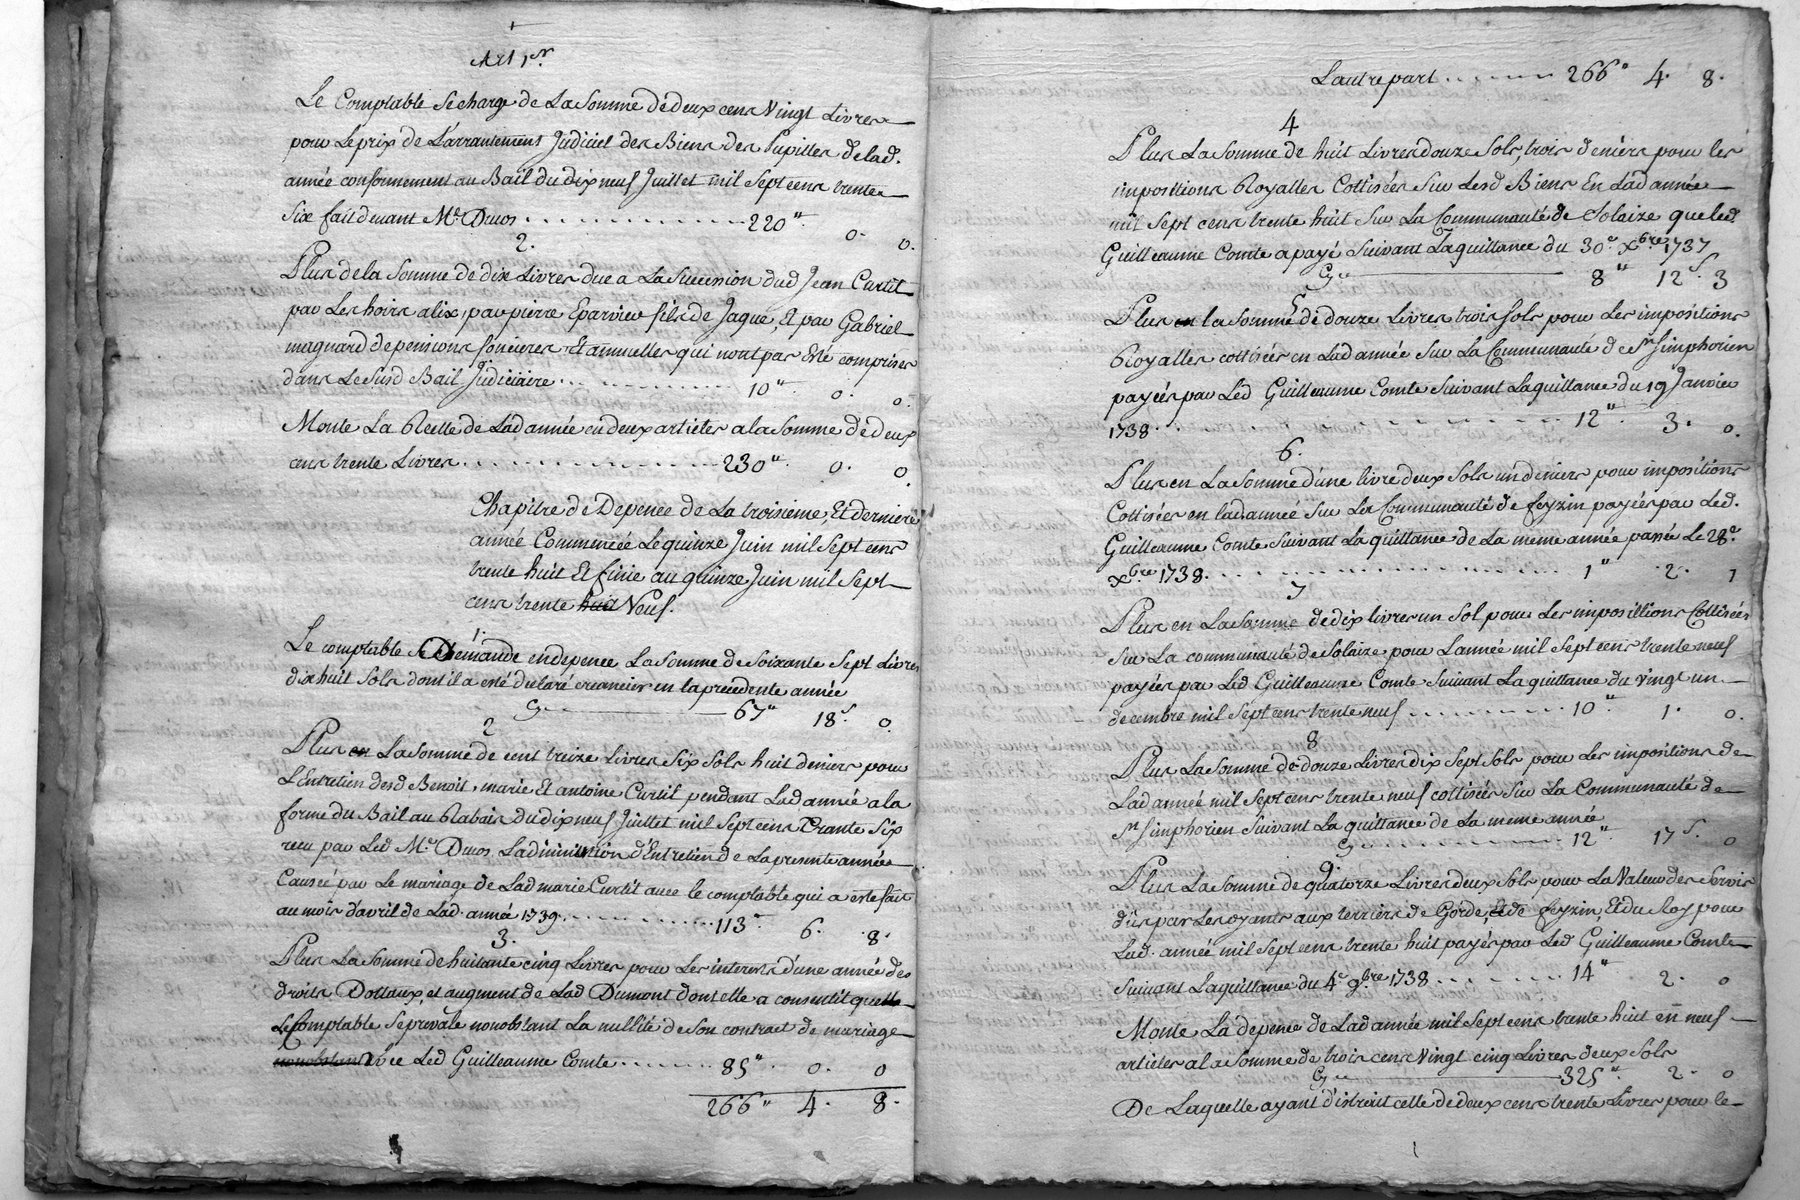 Art 1er.
Le Comptable se charge de La Somme de deux cens Vingt Livres
pour Le prix de L'arrantement Judiciel des Biens des Pupilles de lad.
année conformement au Bail du dix neuf Juillet mil Sept cens trente
Six fait devant Me. Duos 220" 0. 0.
2.
Plus de la Somme de dix Livres due a La Succession dud Jean Curtil
par Les hoirs alix, par pierre Eparvieu fils de Jaque, Et par Gabriel
magnard de pensions foncieres Et annuelles qui nont pas Eté comprises
dans Le Susd Bail Judiciaire 10" 0. 0.
Monte La Recette de Lad année en deux articles a la Somme de deux
cens trente Livres 230" 0. 0.
Chapitre de Depence de La troisieme, Et derniere
année Commencée Le quinze Juin mil Sept cens
trente huit Et finie au quinze Juin mil Sept
cens trente huit Neuf.
1.
Le comptable se Demande en depence La Somme de Soixante Sept Livres
dix huit Sols dont il a esté declaré creancier en la precedente année
Cy 67" 18s. 0.
2
Plus en La Somme de cent treize Livres Six Sols huit deniers pour
L'Entretien desd Benoit, marie Et antoine Curtil pendant Lad année a la
forme du Bail au Rabais du dix neuf Juillet mil Sept cens Trante Six
recu par Led Me. Duos, Ladiminution d'Entretien de La presente année
Causée par Le mariage de Lad marie Curtil avec le comptable qui a esté fait
au mois d'avril de Lad. année 1739 113" 6. 8.
3.
Plus La Somme de huitante cinq Livres pour Les interests d'une année des
droits Dottaux et augment de Lad Dumont dont elle a consentit que
Le Comptable Se prevale nonobstant La nullité de Son contract de mariage
nonobstant avec Led Guilleaume Comte 85" 0. 0
266" 4. 8.
L'autre part 266" 4. 8.
4
Plus La Somme de huit Livres douze Sols, trois deniers pour les
impositions Royalles Cottisées Sur Lesd Biens En Lad année
mil Sept cens trente huit Sur La Communauté de Solaize que led.
Guilleaume Comte a payé Suivant La quittance du 30e Xbre 1737
Cy 8" 12s. 3
5
Plus en la Somme de douze Livres trois Sols pour Les impositions
Royalles cottisées en Lad année Sur La Communauté de St Simphorien
payées par Led Guilleaume Comte Suivant La quittance du 19 Janvier
1738 12" 3. 0.
6.
Plus en La Somme d'une livre deux Sols un deniers pour impositions
Cottisées en lad. année Sur La Communauté de feyzin payées par Led.
Guilleaume Comte Suivant La quittance de La meme année passé Le 28e
Xbre 1738. 1" 2. 1
7
Plus en La Somme de dix livres un Sol pour Les impositions Cottisées
Sur La communauté de Solaize pour L'année mil Sept cens trente neuf
payées par Led Guilleaume Comte Suivant La quittance du Vingt un
decembre mil Sept cens trente neuf 10" 1. 0.
8
Plus La Somme de douze Livres dix Sept Sols pour Les impositions de
Lad année mil Sept cens trente neuf cottisées Sur La Communauté de
St Simphorien Suivant La quittance de La meme année
Cy 12" 17s. 0
9.
Plus La Somme de quatorze Livres deux Sols pour La Valeur des Servis
dûs par Les oyants aux terriers de Gorde, Et de feyzin, Et du Roy pour
Lad. année mil Sept cens trente huit payés par Led Guilleaume Comte
Suivant La quittance du 4e 9bre 1738 14" 2. 0
Monte La depence de Lad année mil Sept cens trente huit en neuf
articles a la Somme de trois cens Vingt cinq Livres deux Sols
Cy 325" 2. 0
De Laquelle ayant distrait celle de deux cens trente Livres pour le